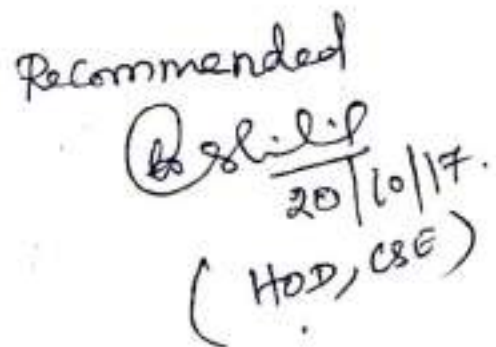 Recommended
20/10/17.
(HOD, CSE)